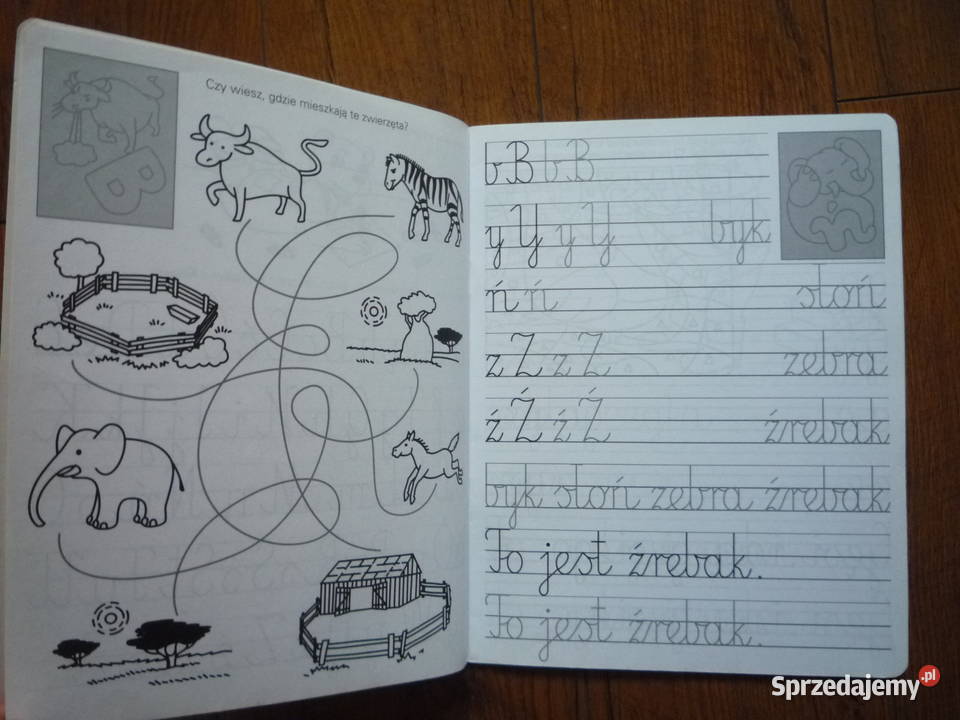 Czy wiesz, gdzie mieszkają te zwierzęta?
B
b B b B
y Y y Y byk
ń ń słoń
z Z z Z zebra
ź Ź ź Ź źrebak
byk słoń zebra źrebak
To jest źrebak.
To jest źrebak.
Sprzedajemy.pl